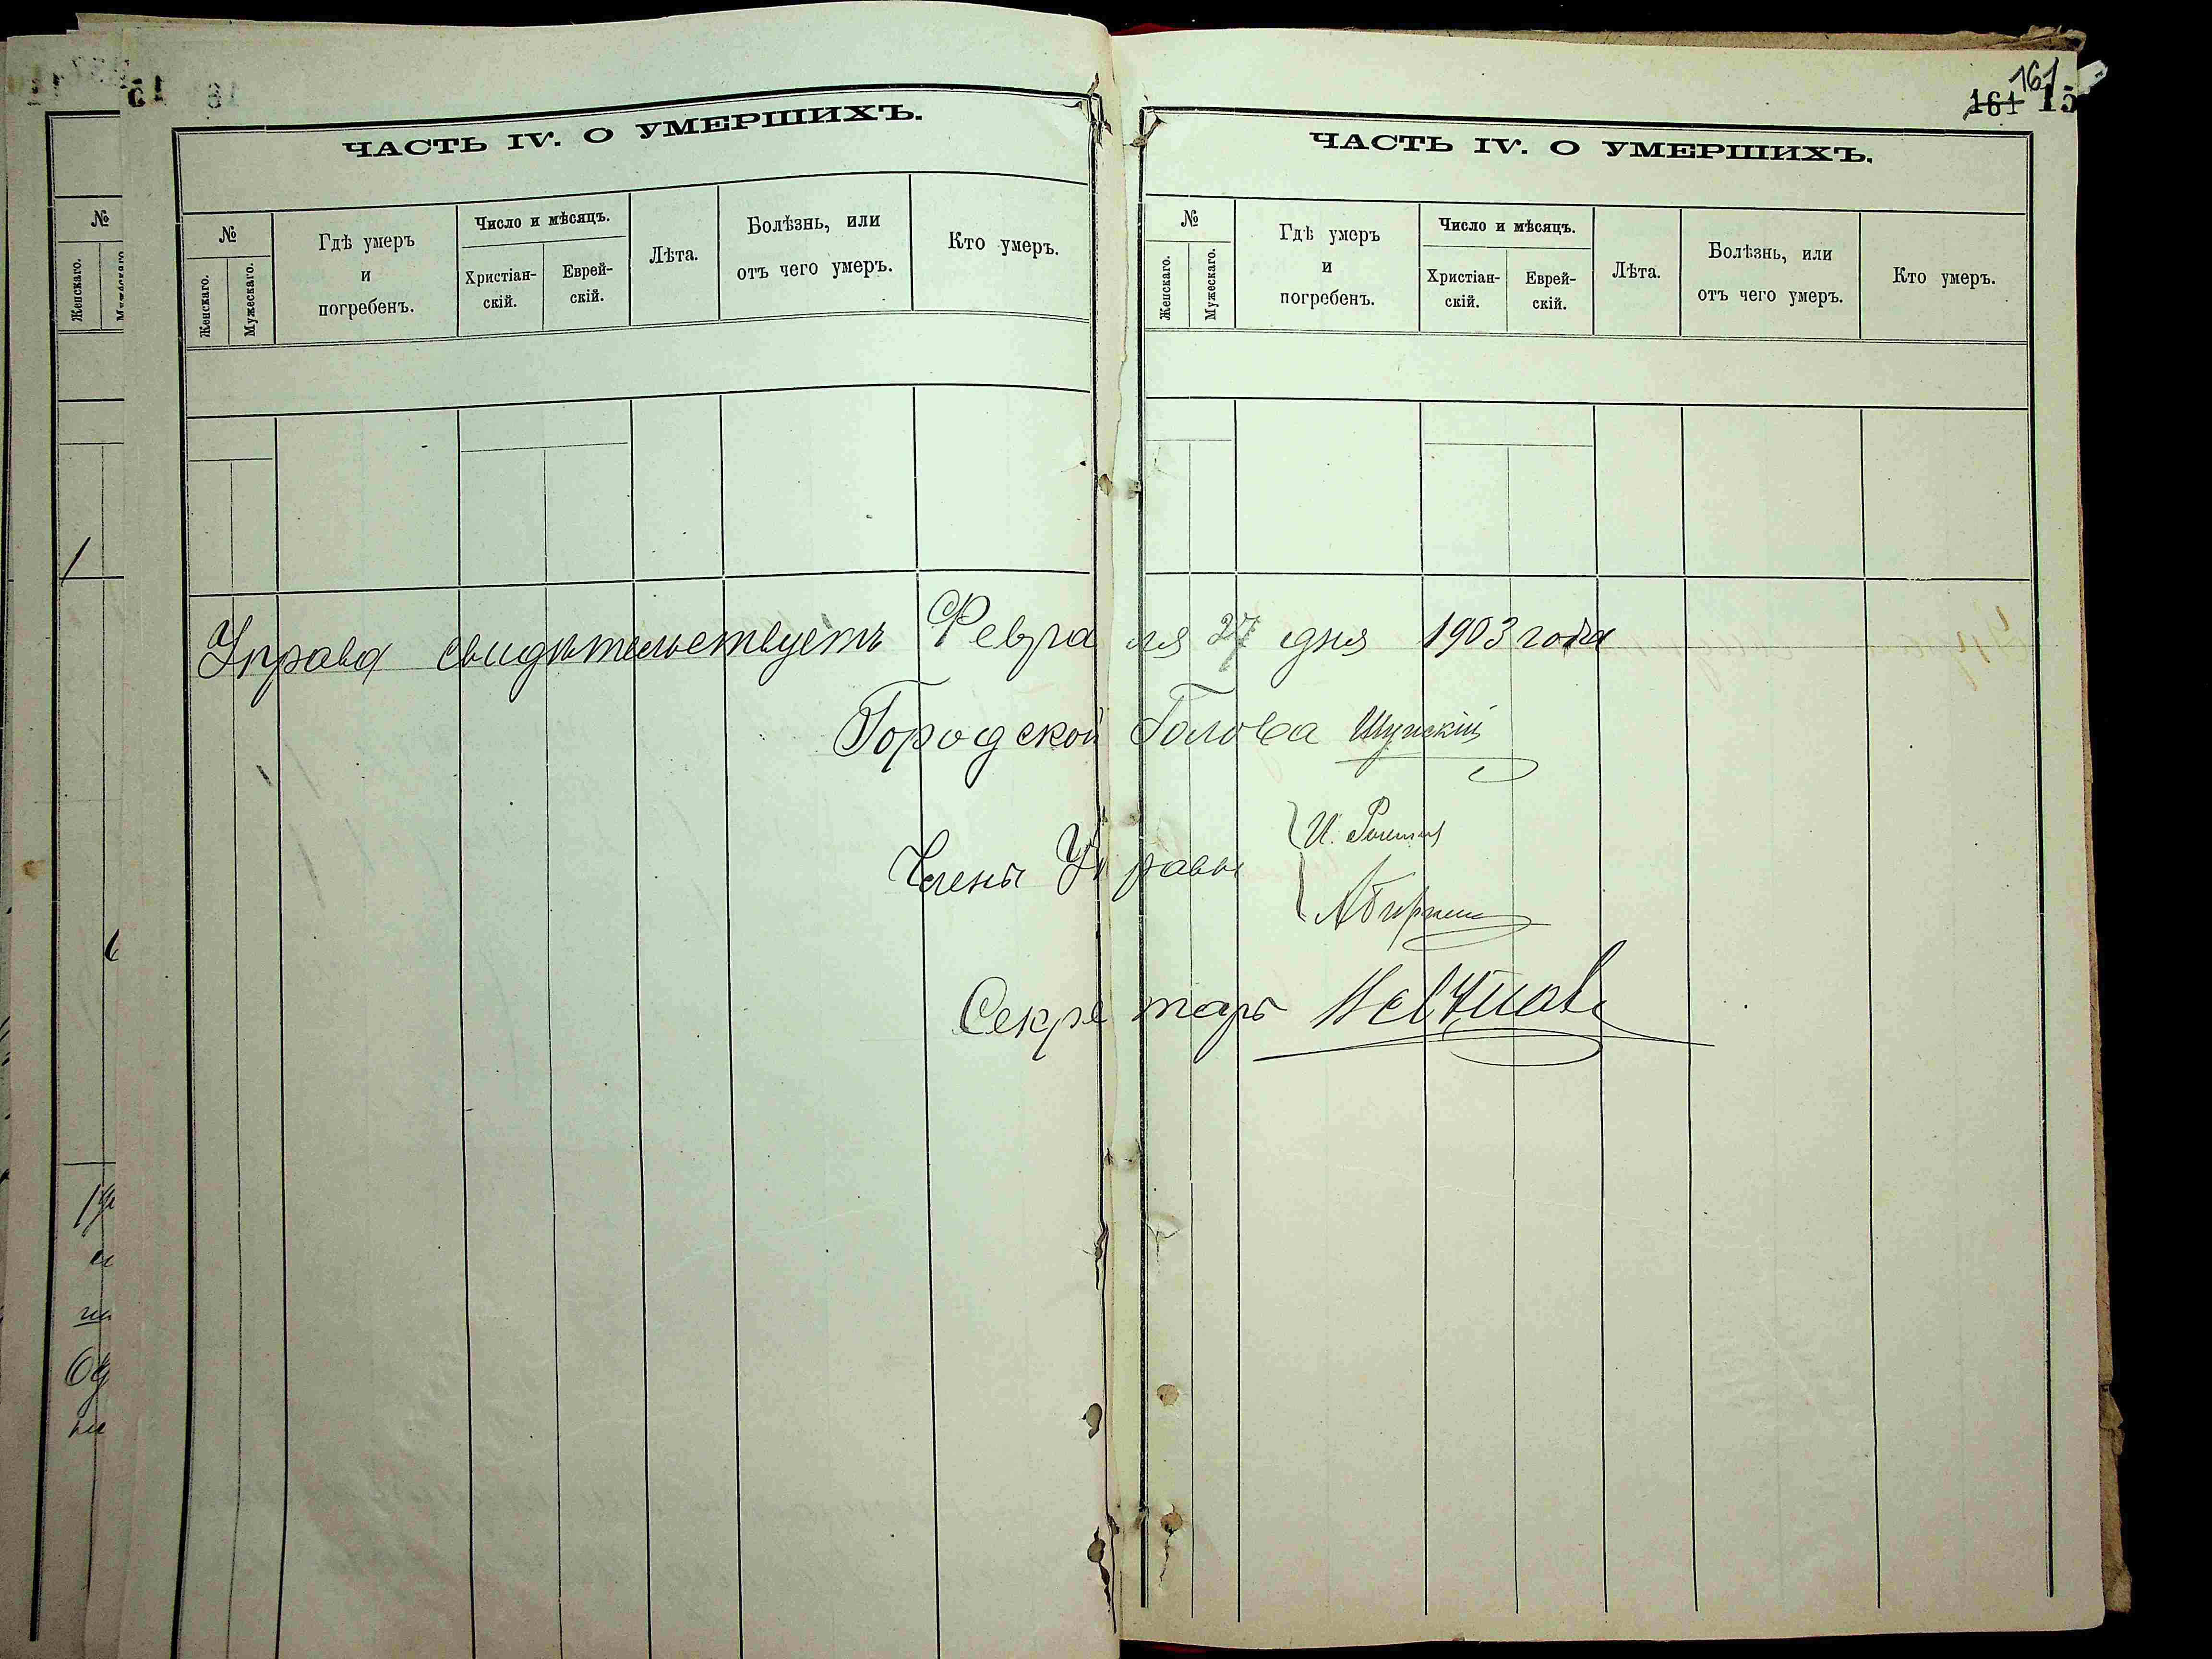 161 15
161
ЧАСТЬ IV. О УМЕРШИХЪ.
№
Женскаго.
Мужескаго.
Гдѣ умеръ
и
погребенъ.
Число и мѣсяцъ.
Христіан-
скій.
Еврей-
скій.
Лѣта.
Болѣзнь, или
отъ чего умеръ.
Кто умеръ.
ЧАСТЬ IV. О УМЕРШИХЪ.
№
Женскаго.
Мужескаго.
Гдѣ умеръ
и
погребенъ.
Число и мѣсяцъ.
Христіан-
скій.
Еврей-
скій.
Лѣта.
Болѣзнь, или
отъ чего умеръ.
Кто умеръ.
№
Женскаго.
Управа свидѣтельствуетъ Февраля 27 дня 1903 года
Городской Голова
Члены Управы
И.
Секретарь